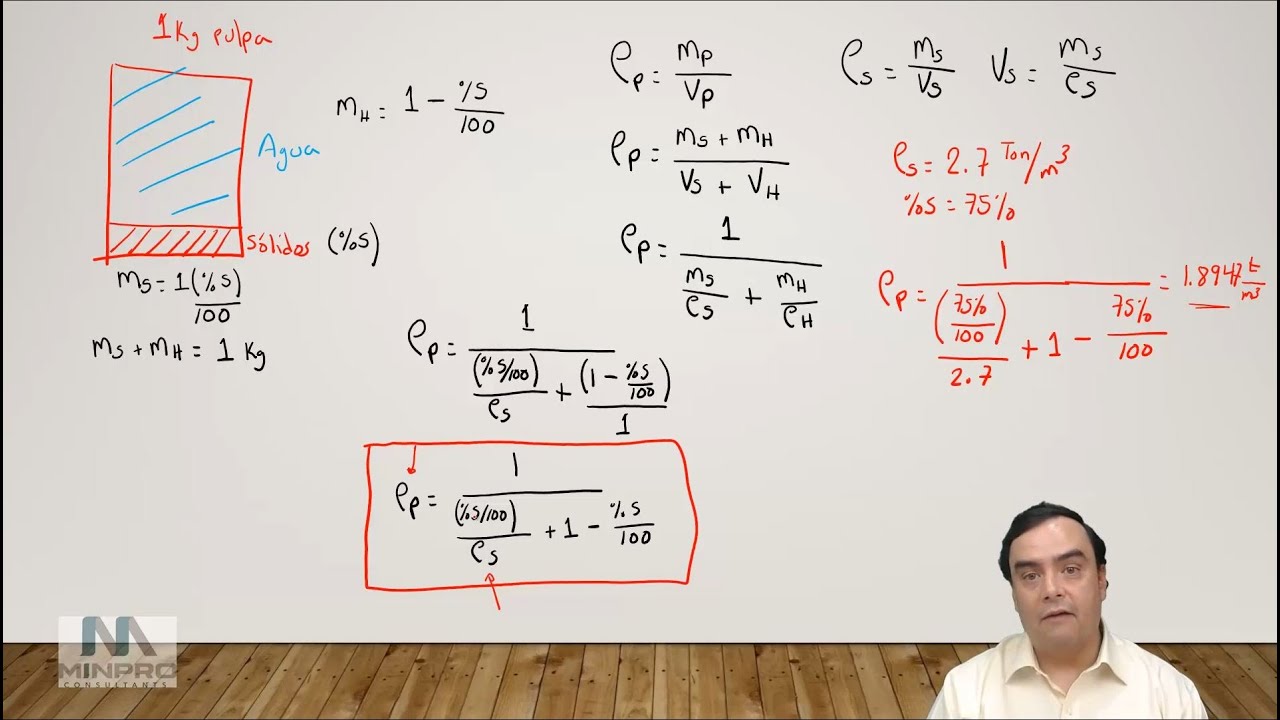 1 Kg pulpa
Agua
Sólidos (%S)
mS = 1(%S)/100
mS + mH = 1 Kg
mH = 1 - %S/100
ρp = mp/Vp
ρp = (mS + mH)/(VS + VH)
ρp = 1/(mS/ρS + mH/ρH)
ρp = 1/((%S/100)/ρS + (1 - %S/100)/1)
ρp = 1/((%S/100)/ρS + 1 - %S/100)
ρS = mS/VS VS = mS/ρS
ρS = 2.7 Ton/m³
%S = 75%
ρp = 1/((75%/100)/2.7 + 1 - 75%/100) = 1.8947 t/m³
MINPRO
CONSULTANTS